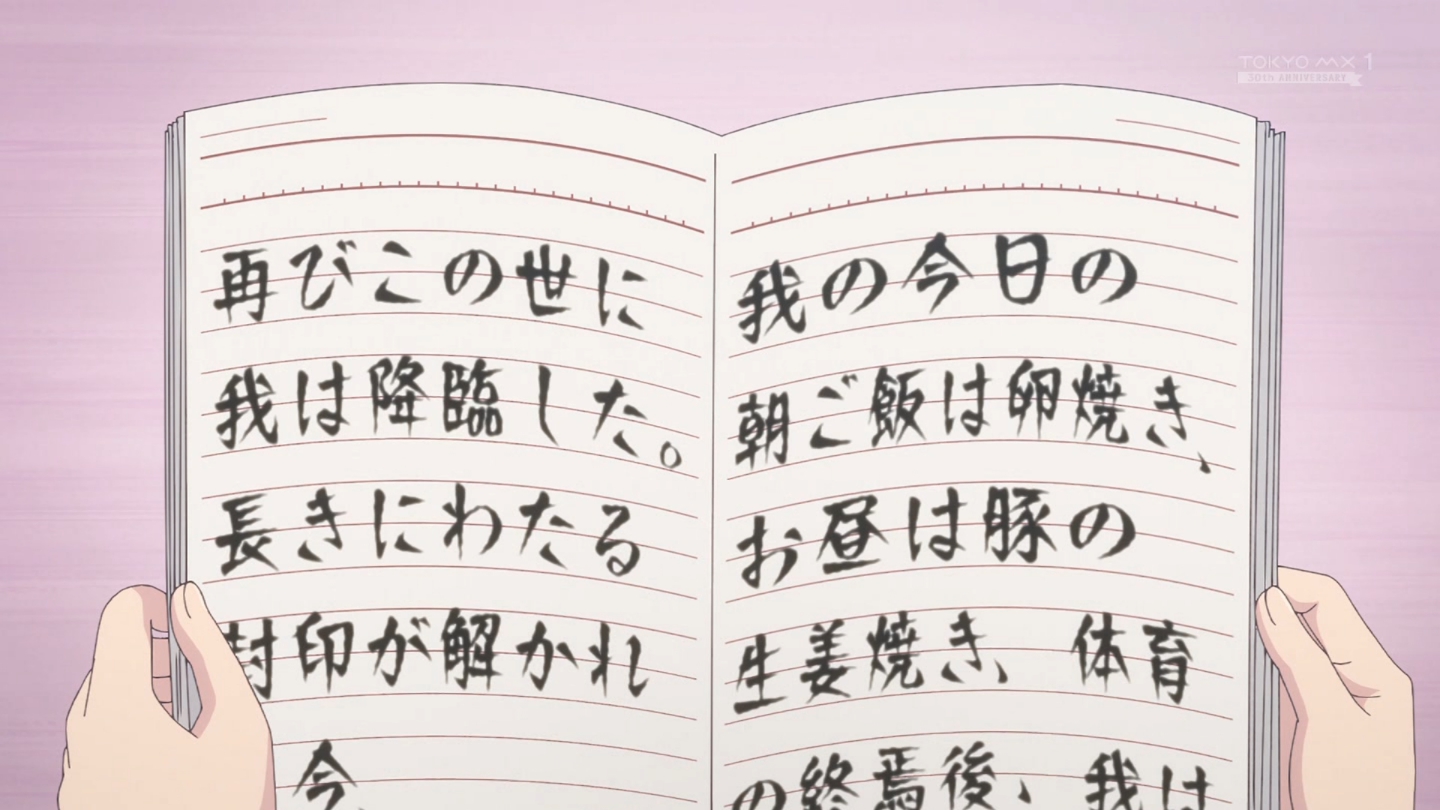 TOKYO MX 1
30th ANNIVERSARY
再びこの世に
我は降臨した。
長きにわたる
封印が解かれ
今、
我の今日の
朝ご飯は卵焼き、
お昼は豚の
生姜焼き、体育
の終焉後、我は